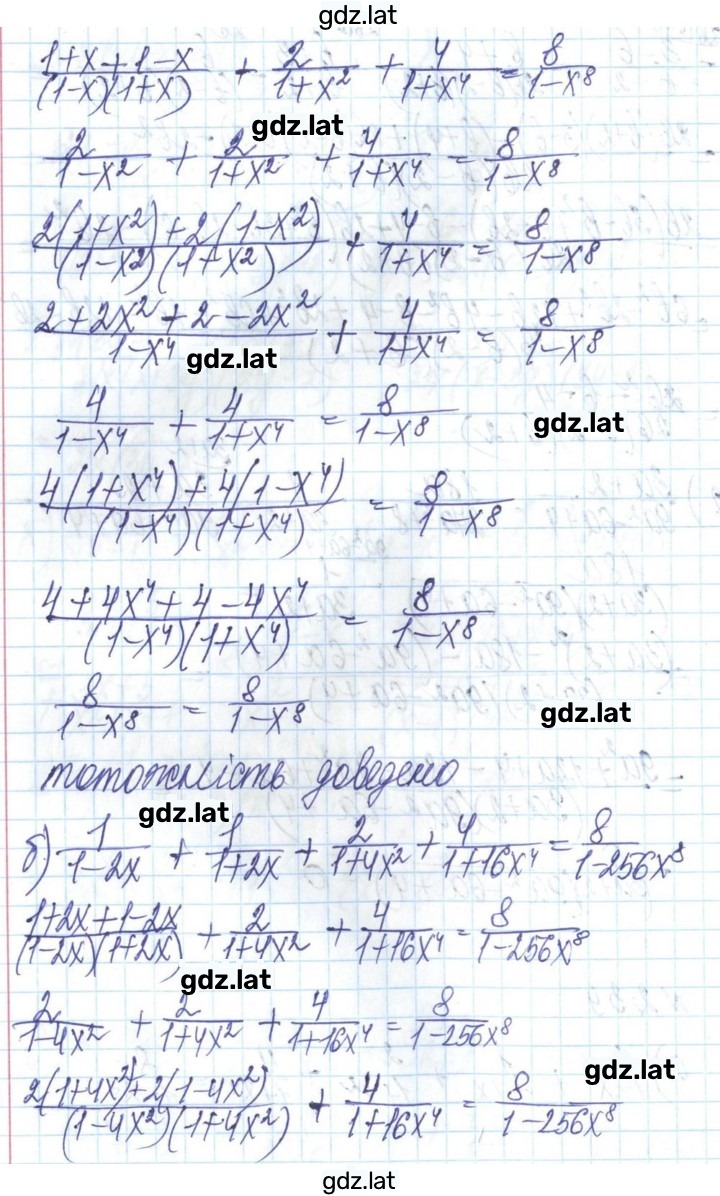 gdz.lat
(1+x+1-x)/((1-x)(1+x)) + 2/(1+x²) + 4/(1+x⁴) = 8/(1-x⁸)
gdz.lat
2/(1-x²) + 2/(1+x²) + 4/(1+x⁴) = 8/(1-x⁸)
(2(1+x²)+2(1-x²))/((1-x²)(1+x²)) + 4/(1+x⁴) = 8/(1-x⁸)
(2+2x²+2-2x²)/(1-x⁴) + 4/(1+x⁴) = 8/(1-x⁸)
gdz.lat
4/(1-x⁴) + 4/(1+x⁴) = 8/(1-x⁸)
gdz.lat
(4(1+x⁴)+4(1-x⁴))/((1-x⁴)(1+x⁴)) = 8/(1-x⁸)
(4+4x⁴+4-4x⁴)/((1-x⁴)(1+x⁴)) = 8/(1-x⁸)
8/(1-x⁸) = 8/(1-x⁸)
gdz.lat
тотожність доведено
gdz.lat
б) 1/(1-2x) + 1/(1+2x) + 2/(1+4x²) + 4/(1+16x⁴) = 8/(1-256x⁸)
(1+2x+1-2x)/((1-2x)(1+2x)) + 2/(1+4x²) + 4/(1+16x⁴) = 8/(1-256x⁸)
gdz.lat
2/(1-4x²) + 2/(1+4x²) + 4/(1+16x⁴) = 8/(1-256x⁸)
gdz.lat
(2(1+4x²)+2(1-4x²))/((1-4x²)(1+4x²)) + 4/(1+16x⁴) = 8/(1-256x⁸)
gdz.lat